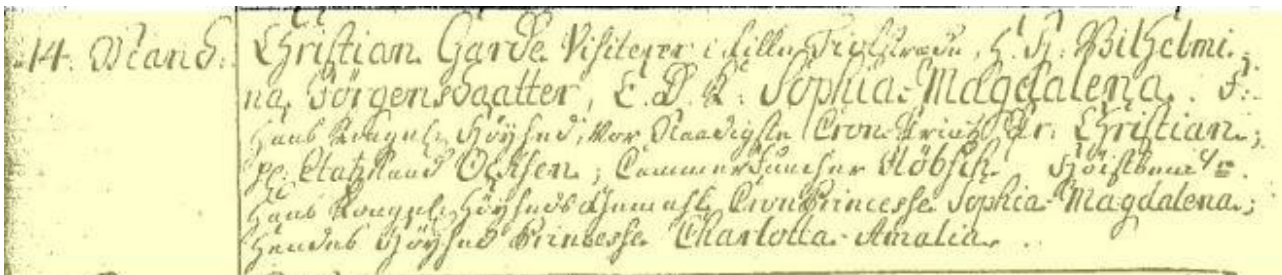 14. Mand. Christian Garde Visiterer i lille Fiolstræde, H. H. Wilhelmi-
na Jörgensdaatter, E. D. K. Sophia Magdalena. F:
Hans Kongel. Höyhed, Vor Naadigste Cron Printz Hr. Christian;
pp. Etatz Raad Ochsen; Cammer Juncher Höistbem:te
Hans Kongel. Höyheds Gemahl Cron Princesse Sophia Magdalena;
Hendes Höyhed Princesse Charlotta Amalia.